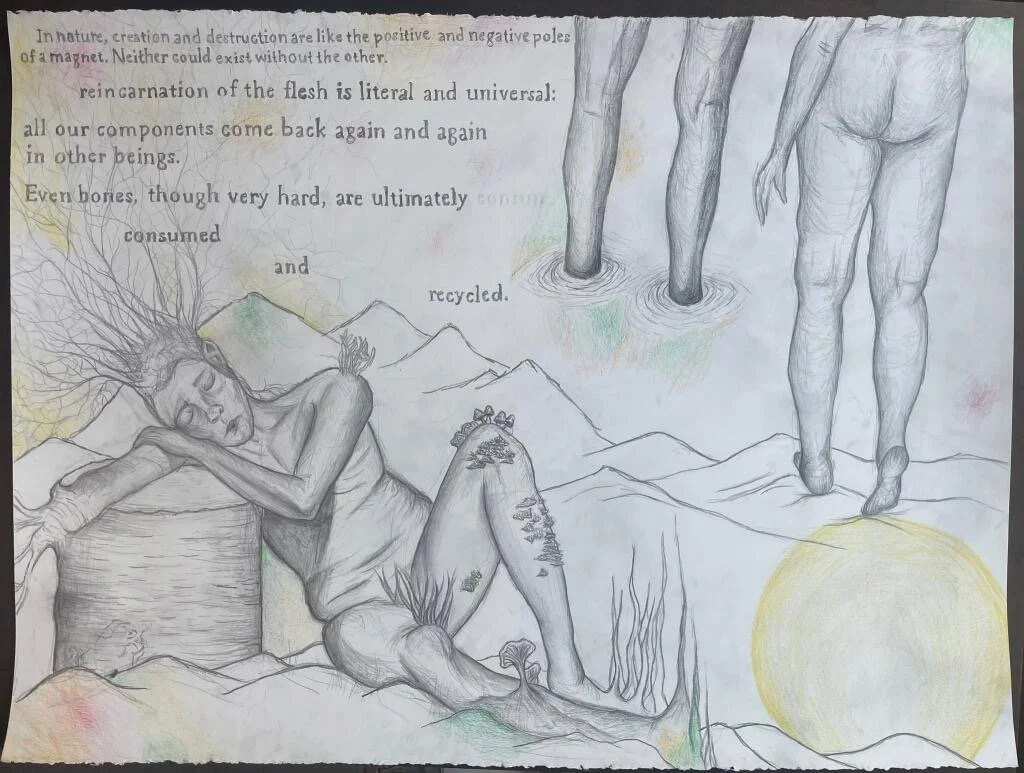 In nature, creation and destruction are like the positive and negative poles
of a magnet. Neither could exist without the other.
reincarnation of the flesh is literal and universal:
all our components come back again and again
in other beings.
Even bones, though very hard, are ultimately consum
consumed
and
recycled.